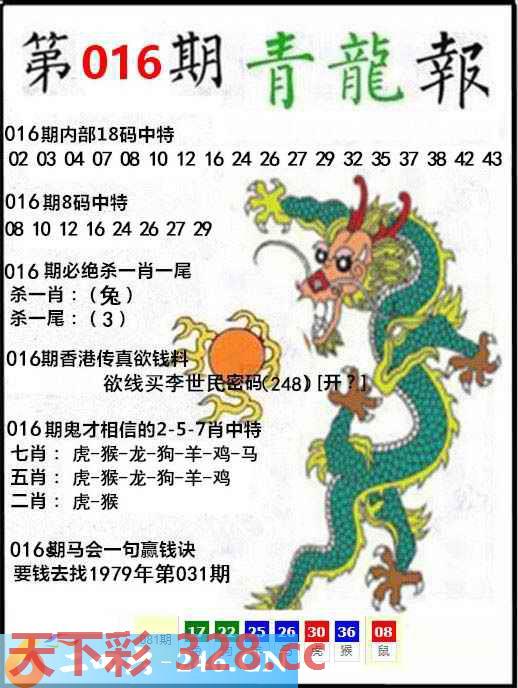 第016期青龍報
016期内部18码中特
02 03 04 07 08 10 12 16 24 26 27 29 32 35 37 38 42 43
016期8码中特
08 10 12 16 24 26 27 29
016期必绝杀一肖一尾
杀一肖：(兔)
杀一尾：(3)
016期香港传真欲钱料
欲线买李世民密码(248)[开?]
016期鬼才相信的2-5-7肖中特
七肖：虎-猴-龙-狗-羊-鸡-马
五肖：虎-猴-龙-狗-羊-鸡
二肖：虎-猴
016期马会一句赢钱诀
要钱去找1979年第031期
17 22 25 26 30 36 08
虎 猴 鼠
天下彩-328.cc